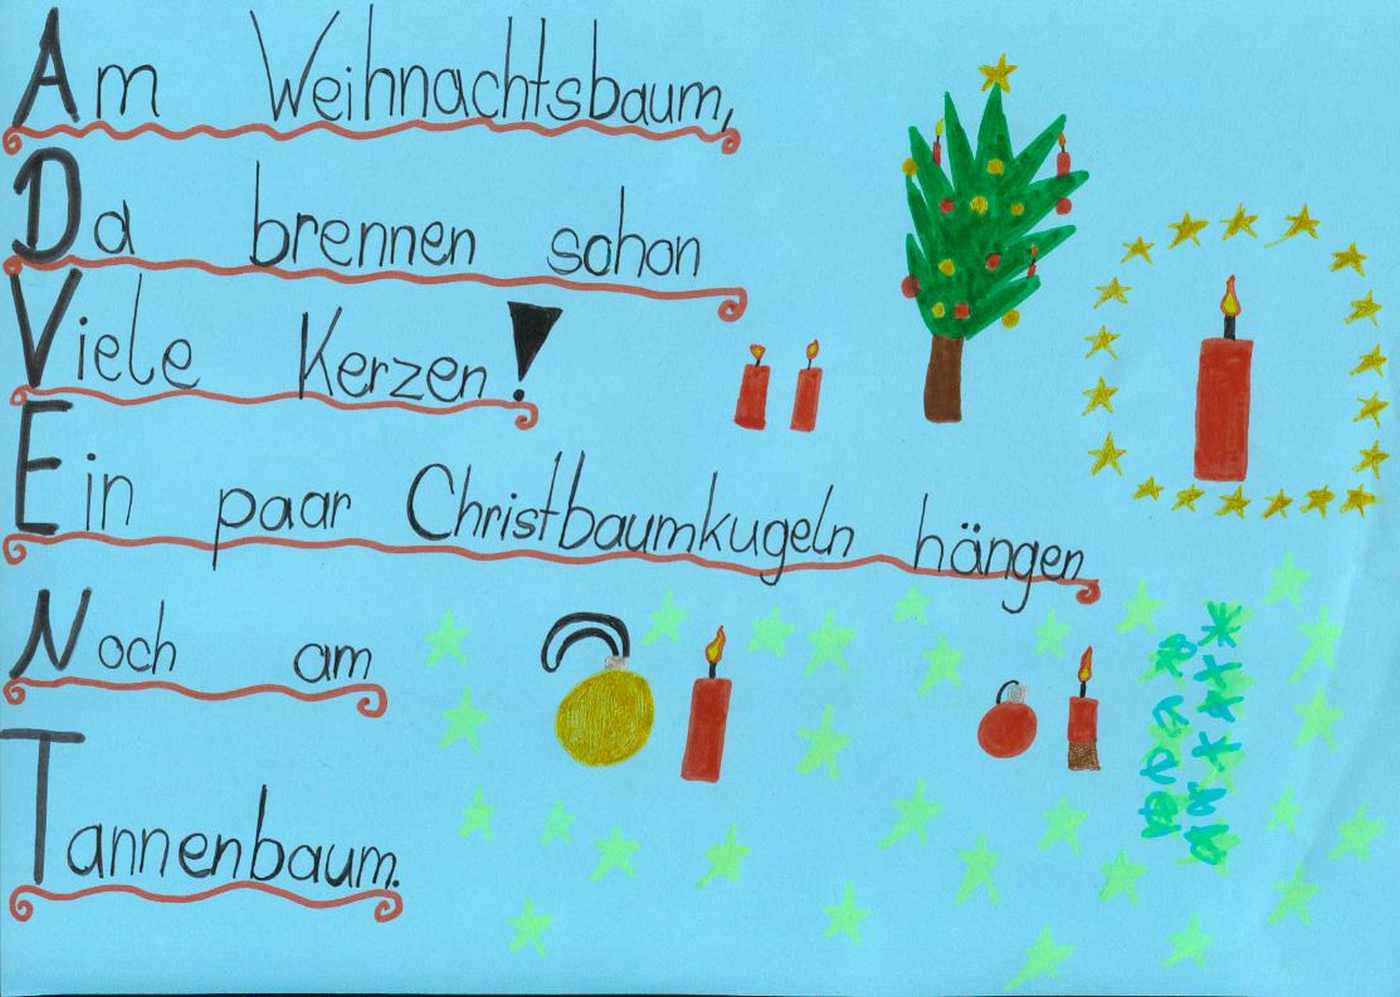 Am Weihnachtsbaum,
Da brennen schon
Viele Kerzen!
Ein paar Christbaumkugeln hängen
Noch am
Tannenbaum.